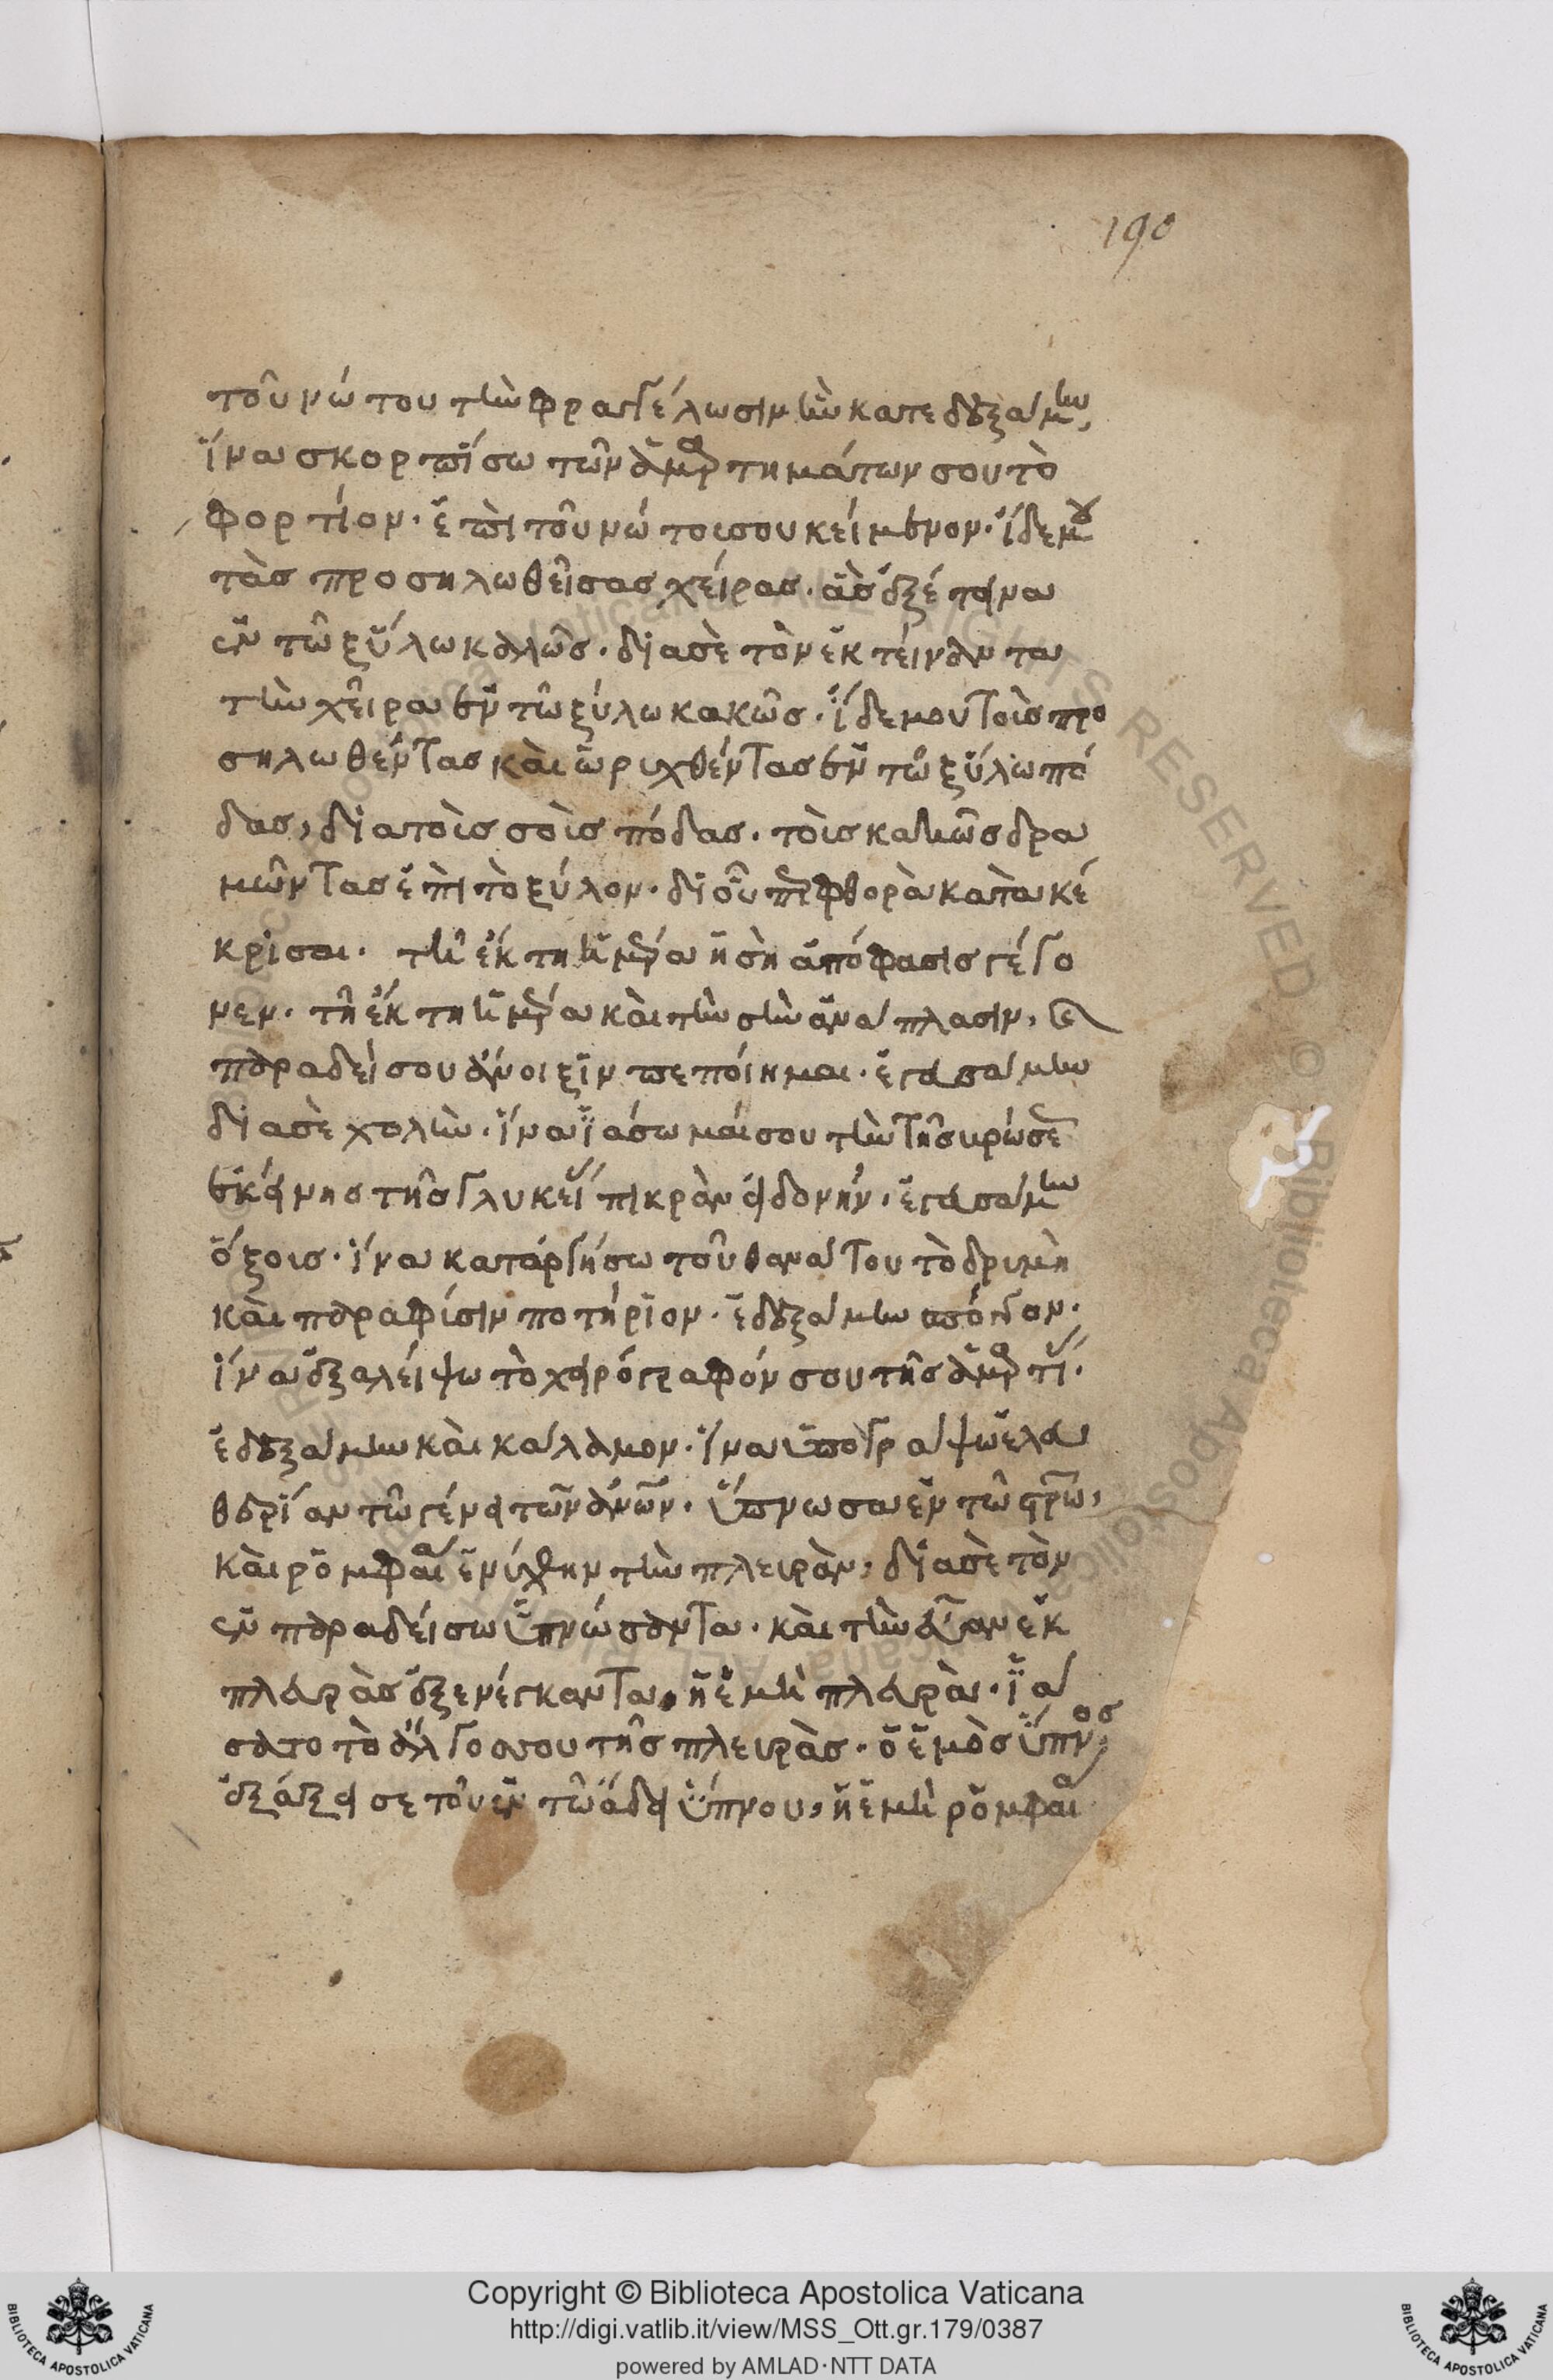 190
τοῦ νώτου τὴν φραγγέλωσιν ἣν κατεδεξάμην,
ἵνα σκορπίσω τῶν ἁμαρτημάτων σου τὸ
φορτίον. ἐπὶ τοῦ νώτοισου κείμενον. ἴδε μου
τὰς προσηλωθεῖσας χείρας. ἃς ἐξέτεινα
ἐν τῶ ξύλω καλῶς. διὰ σὲ τὸν ἐκτείναντα
τὴν χεῖρα ἐν τῶ ξύλω κακῶς. ἴδε μου τοὶς προ
σηλωθέντας καὶ ὠριχθέντας ἐν τῶ ξύλω πό
δας, διὰ τοὶς σοὶς πόδας. τοὶς κακῶς δρα
μῶντας ἐπὶ τὸ ξύλον. δι οὗ παραφθορὰ κατὰ κέ
κρισαι. τῆ ἕκτη ἡμέρα ἡ σὴ ἀπόφασις γέγο
νεν. τῆ ἕκτη ἡμέρα καὶ τὴν σὴν ἀνάπλασιν, καὶ
παραδείσου ἄνοιξιν πεποίημαι. ἐγευσάμην
διὰ σὲ χολὴν. ἵνα ἰάσωμαί σου τὴν
ἐκείνης τῆς γλυκείας πικρὰν ἡδονήν. ἐγευσάμην
ὄξοις. ἵνα καταργήσω τοῦ θανάτου τὸ δριμὴ
καὶ παραφίσιν ποτήριον. ἐδεξάμην σπόγγον.
ἵνα ἐξαλείψω τὸ χειρόγραφόν σου τῆς ἁμαρτίας.
ἐδεξάμην καὶ κάλαμον. ἵνα ὑπογράψω ἐλευ
θερίαν τῶ γένει τῶν ἀνθρώπων. ὕπνωσα ἐν τῶ σταυρῶ,
καὶ ρομφαία ἐνύχθην τὴν πλευρὰν, διὰ σὲ τὸν
ἐν παραδείσω ὑπνώσαντα. καὶ τὴν εὔαν ἐκ
πλευρᾶς ἐξενέγκαντα, ἡ ἐμὴ πλευρὰ. ἰά
σατο τὸ ἄλγος σου τῆς πλευρᾶς. ὁ ἐμὸς ὕπνος
ἐξάξει σε τοῦ ἐν τῶ ἅδει ὕπνου, ἡ ἐμὴ ρομφαία
Copyright © Biblioteca Apostolica Vaticana
http://digi.vatlib.it/view/MSS_Ott.gr.179/0387
powered by AMLAD·NTT DATA